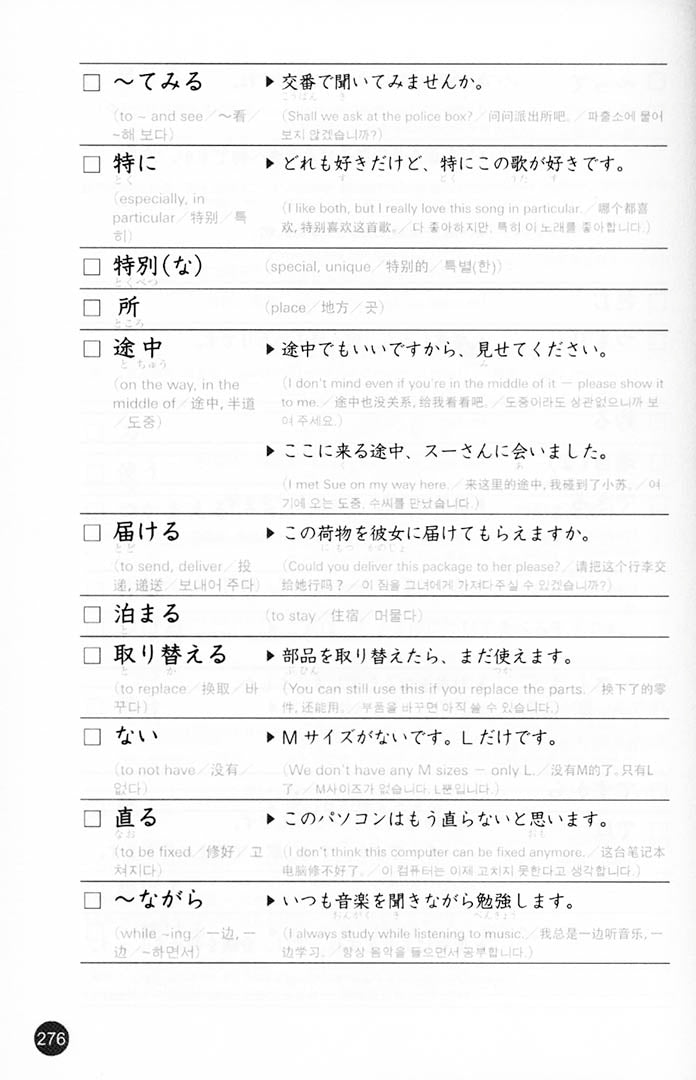 □ ～てみる ▶ 交番で聞いてみませんか。
こうばん き
(to ~ and see／～看／ (Shall we ask at the police box?／问问派出所吧。／파출소에 물어
~해 보다) 보지 않겠습니까?)
□ 特に ▶ どれも好きだけど、特にこの歌が好きです。
とく す とく うた す
(especially, in
particular／特别／특 (I like both, but I really love this song in particular.／哪个都喜
히) 欢,特别喜欢这首歌。／다 좋아하지만, 특히 이 노래를 좋아합니다.)
□ 特別(な) (special, unique／特别的／특별(한))
とくべつ
□ 所 (place／地方／곳)
ところ
□ 途中 ▶ 途中でもいいですから、見せてください。
と ちゅう み
(on the way, in the (I don't mind even if you're in the middle of it — please show it
middle of／途中, 半道 to me.／途中也没关系,给我看看吧。／도중이라도 상관없으니까 보
／도중) 여 주세요.)
▶ ここに来る途中、スーさんに会いました。
く あ
(I met Sue on my way here.／来这里的途中,我碰到了小苏。／여
기에 오는 도중, 수씨를 만났습니다.)
□ 届ける ▶ この荷物を彼女に届けてもらえますか。
とど に もつ かのじょ
(to send, deliver／投 (Could you deliver this package to her please?／请把这个行李交
递,递送／보내어 주다) 给她行吗？／이 짐을 그녀에게 가져다주실 수 있겠습니까?)
□ 泊まる (to stay／住宿／머물다)
と
□ 取り替える ▶ 部品を取り替えたら、まだ使えます。
と か ぶひん つか
(to replace／换取／바 (You can still use this if you replace the parts.／换下了的零
꾸다) 件,还能用。／부품을 바꾸면 아직 쓸 수 있습니다.)
□ ない ▶ M サイズがないです。L だけです。
(to not have／没有／ (We don't have any M sizes — only L.／没有M的了。只有L
없다) 了。／M사이즈가 없습니다. L뿐입니다.)
□ 直る ▶ このパソコンはもう直らないと思います。
なお おも
(to be fixed／修好／고 (I don't think this computer can be fixed anymore.／这台笔记本
쳐지다) 电脑修不好了。／이 컴퓨터는 이제 고치지 못한다고 생각합니다.)
□ ～ながら ▶ いつも音楽を聞きながら勉強します。
おんがく き べんきょう
(while ~ing／一边,一 (I always study while listening to music.／我总是一边听音乐,一
边／~하면서) 边学习。／항상 음악을 들으면서 공부합니다.)
276